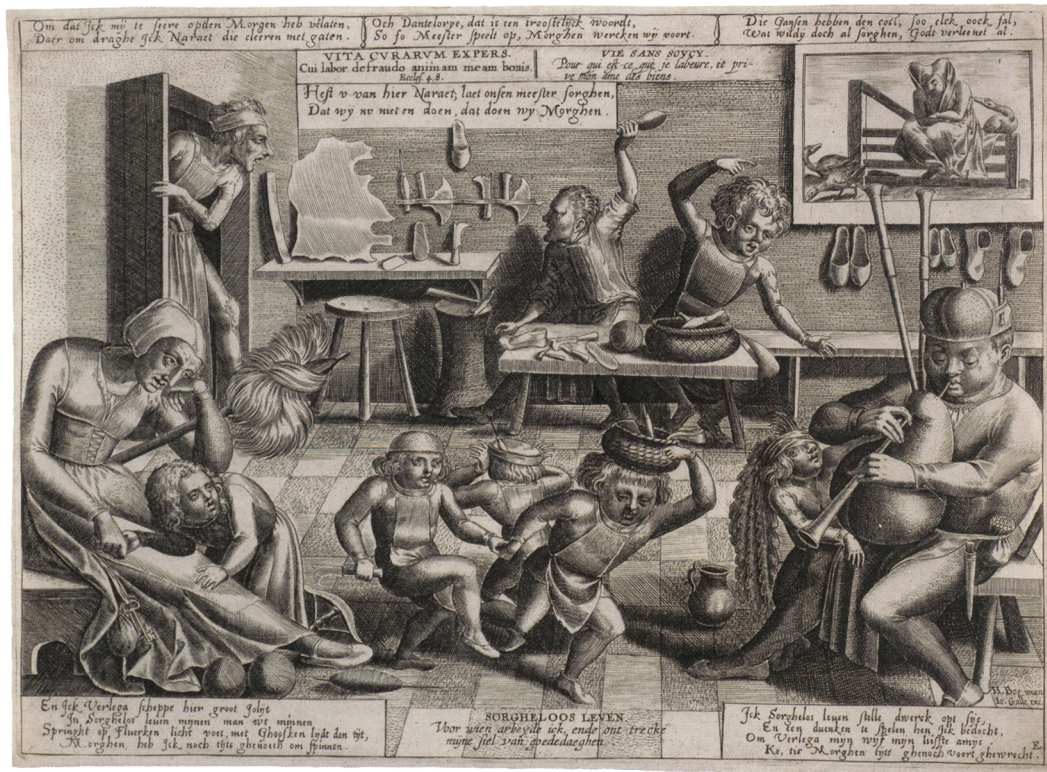 Om dat Jck mÿ te seere opden Morgen heb vêlaten,
Daer om draghe Jck Naraet die cleeren met gaten.
Och Dantelorye, dat is een troostelÿck woordt,
So so Meester speelt op, Morghen wercken wÿ voort.
Die Gansen hebben den cost, soo elck oock sal,
Wat wildy doch al sorghen, Godt verleenet al.
VITA CVRARVM EXPERS.
Cui labor defraudo animam meam bonis.
Eccles. 4. 8.
VIE SANS SOVCY.
Pour qui est-ce que je labeure, et pri-
ve mon ame des biens.
Hest v van hier Naraet, laet onsen meester sorghen,
Dat wÿ nv niet en doen, dat doen wÿ Morghen.
H. Bos man
En Jck Verlega scheppe hier groot Jolÿt
In Sorghelos leuen mÿnen man wt minnen
Springht op Fluercken licht voet, met Ghoosken lydt den tÿt,
Morghen heb Jck noch tÿts ghenoech om spinnen.
SORGHELOOS LEVEN.
Voor wien arbeyde ick, ende ont trecke
mÿne siel van goede daeghen
Jck Sorghelos leuen stelle dwerck opt sÿe,
En een duenken te spelen hen Jck bedocht.
Om Verlega mÿn wÿf mÿn liefste amÿe
Ke, tie Morghen tÿts ghenoch voort ghewrocht.